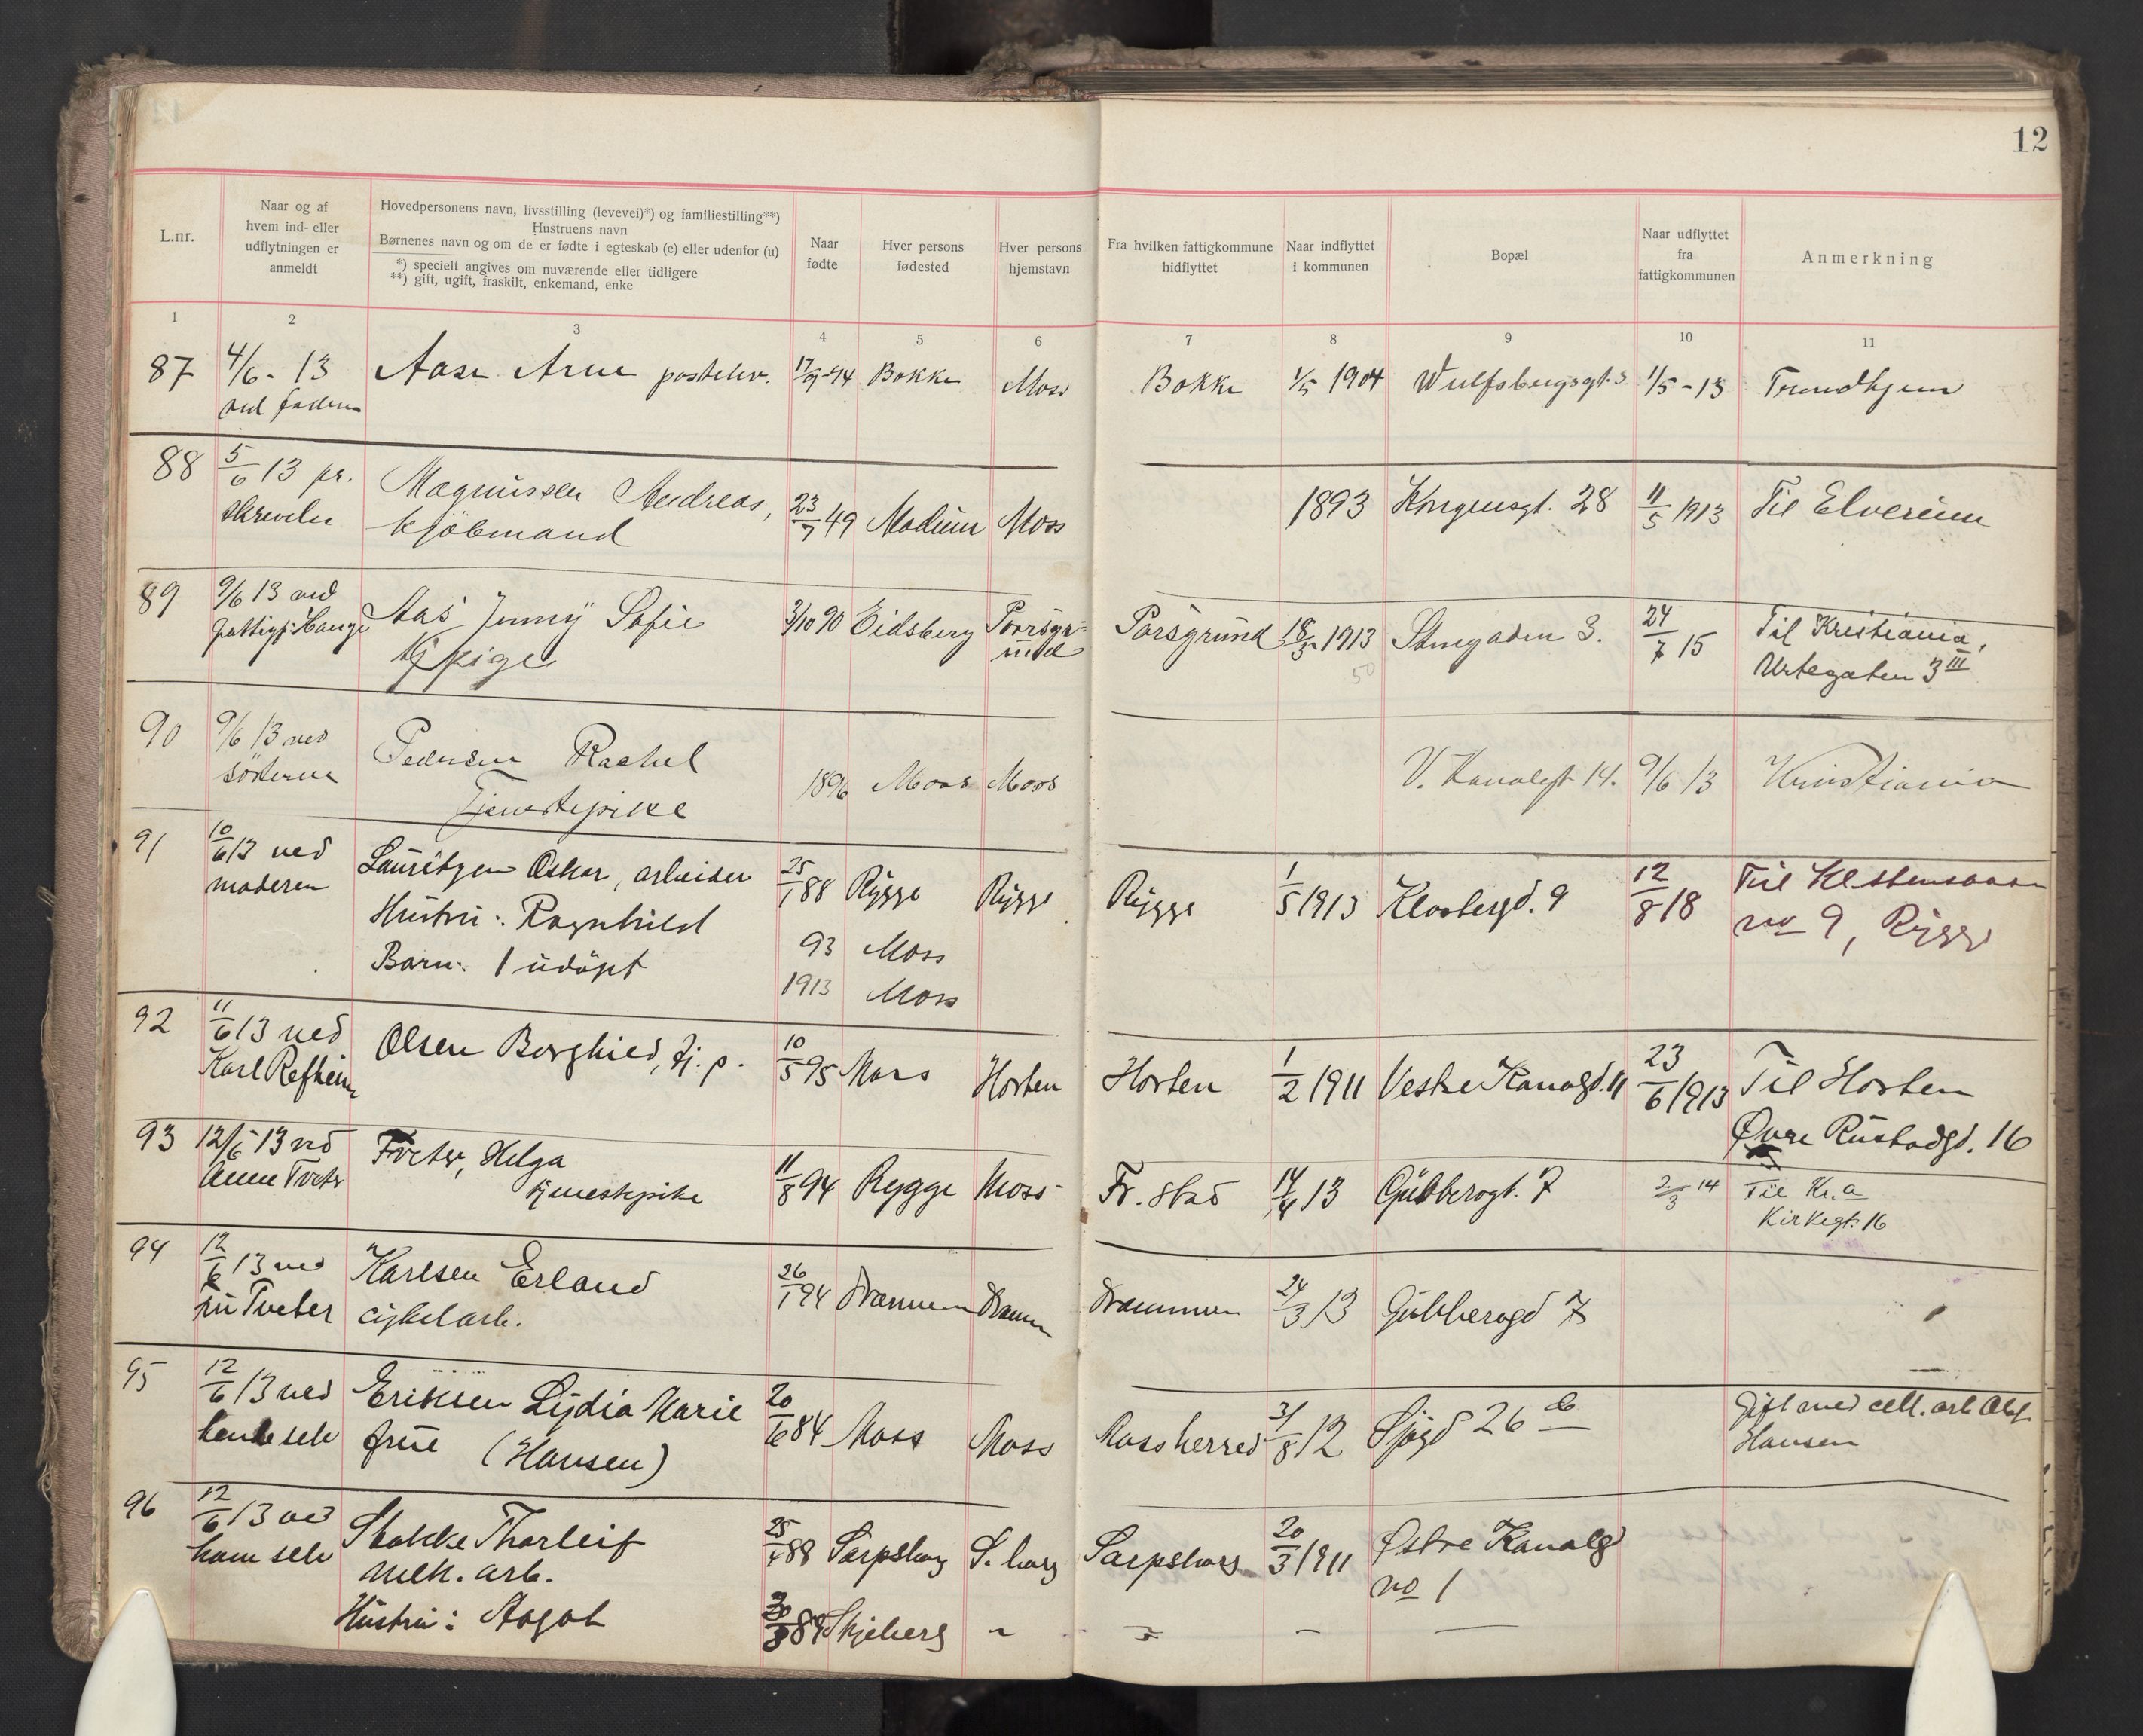 12
L.nr.
Naar og af
hvem ind- eller
udflytningen er
anmeldt
Hovedpersonens navn, livsstilling (levevei)*) og familiestilling**)
Hustruens navn
Børnenes navn og om de er fødte i egteskab (e) eller udenfor (u)
*) specielt angives om nuværende eller tidligere
**) gift, ugift, fraskilt, enkemand, enke
Naar
fødte
Hver persons
fødested
Hver persons
hjemstavn
Fra hvilken fattigkommune
hidflyttet
Naar indflyttet
i kommunen
Bopæl
Naar udflyttet
fra
fattigkommunen
Anmerkning
1 2 3 4 5 6 7 8 9 10 11
87 4/6 - 13 Aase Arne postelev. 17/9-94 Bakke Moss Bakke 1/5 1904 Wulfsbergsgt. 1/5-13 Trondhjem
ved faderen
88 5/6 13 pr. Magnussen Andreas, 23/7 49 Modum Moss 1893 Kongensgt. 28 11/5 1913 Til Elverum
skrivelse kjöbmand
89 9/6 13 ved Aas Jenny Sofie 3/10 90 Eidsberg Porsgr- Porsgrund 18/3 1913 Storgaden 3. 24/7 15 Til Kristiania,
pige und 50 Urtegaten 3 III
90 9/6 13 ved Pedersen Rachel 1896 Moss Moss V. Kanalgt 14. 9/6 13 Kristiania
sösteren Tjenestepike
91 10/6 13 ved Lauritzen Oskar, arbeider 25/1 88 Rygge Rygge Rygge 1/5 1913 Klostergd. 9 12/8 18 Til
moderen Hustru: Ragnhild 93 Moss no 9, Rygge
Barn: 1 udöpt 1913 Moss
92 11/6 13 ved Olsen Borghild, tj. p. 10/5 95 Moss Horten Horten 1/2 1911 Vestre Kanalgd. 11 23/6 1913 Til Horten
Karl Refheim Øvre Rustadgd. 16
93 12/6 13 ved Tveter, Helga 11/8 94 Rygge Moss Fr. stad 14/4 13 Gubberogt. 7 2/3 14 Til Kr.a
Anne Tveter tjenestepike Kirkegt. 16
94 12/6 13 ved Karlsen Erland 26/1 94 Drammen Drammen Drammen 24/3 13 Gubberogd 7
fru Tveter cykelarb.
95 12/6 13 ved Eriksen Lydia Marie 20/6 84 Moss Moss Moss herred 31/8 12 Sjøgd 26 b Gift med cell. arb Olaf
hende selv frue (Hansen) Hansen
96 12/6 13 ved Stokke Thorleif 25/4 88 Sarpsborg S. borg Sarpsborg 20/3 1911 Østre Kanalg
ham selv mek. arb. no 1
Hustru: Aagot 89 Skjeberg - - - -